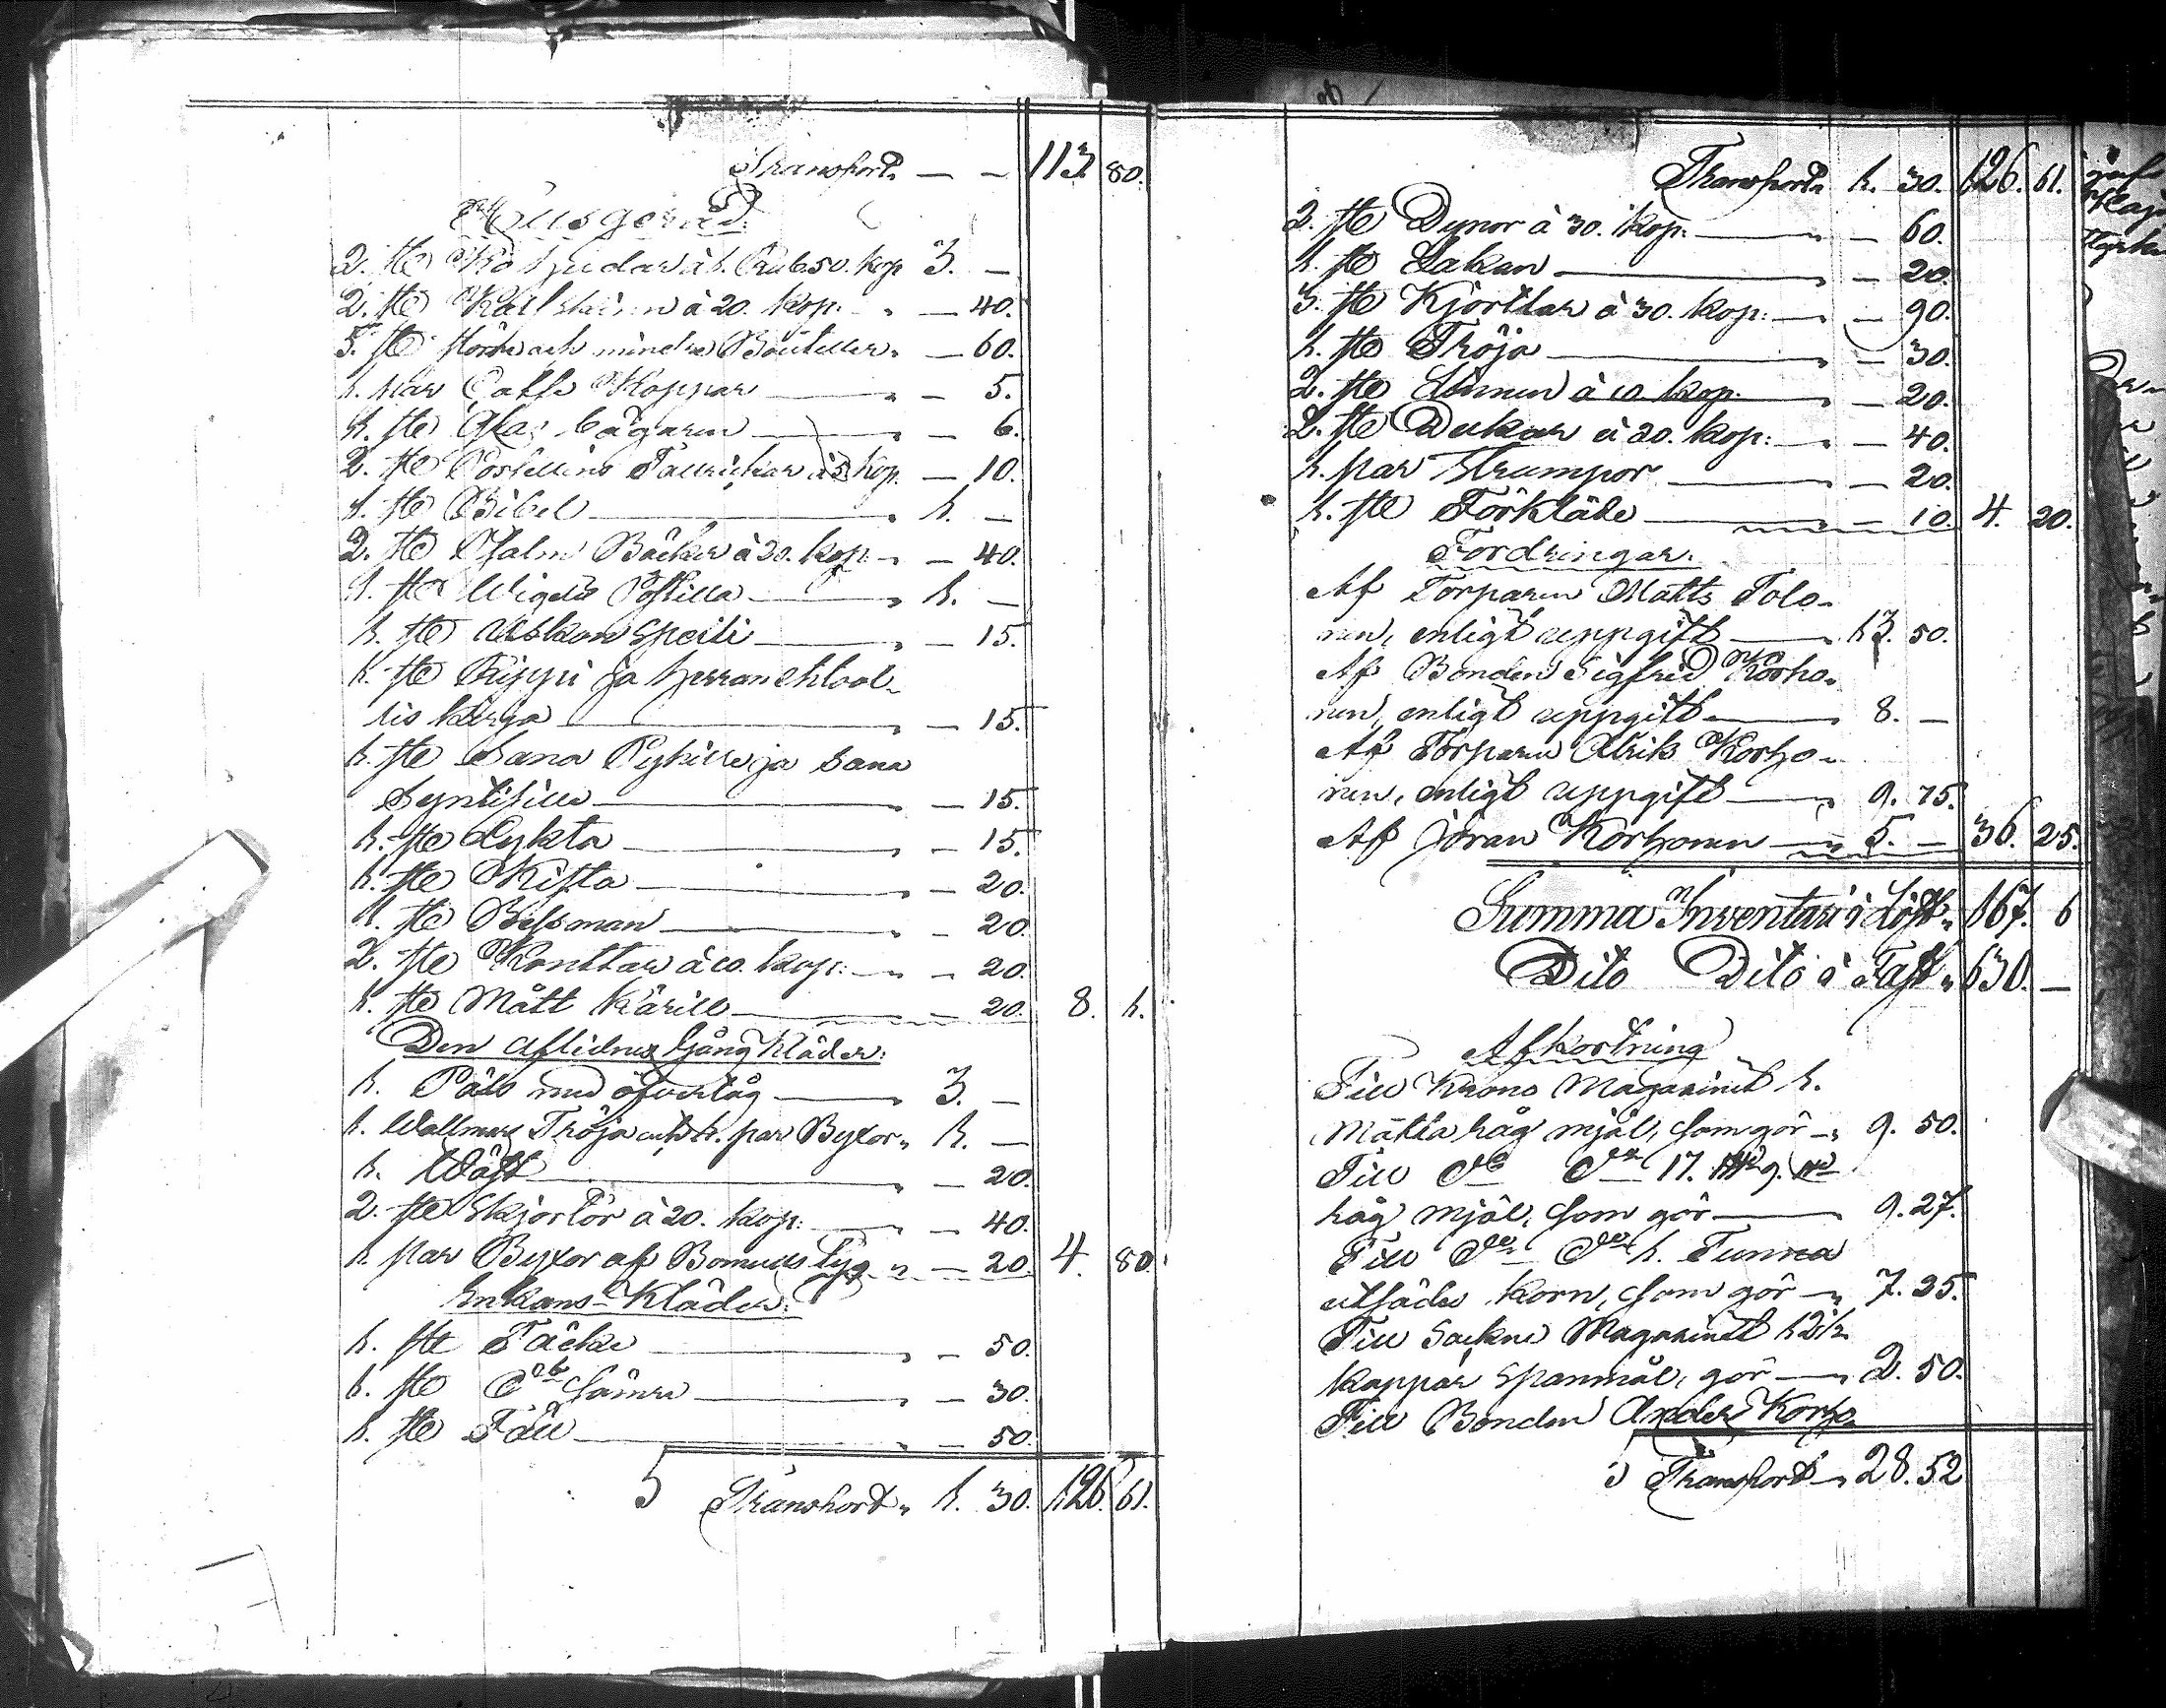 Transport — — 113. 80.
Husgeråd.
2. st. Ko hudar à 1. Rub. 50. kop. 3. —
2. st. Kalfskinn à 20. kop. " — 40.
5. st. större och mindre Boutiller " — 60.
1. par Caffe Koppar — " — 5.
1. st. Glas bägaren — " — 6.
2. st. Postlins Tallrickar à 5 kop. — 10.
1. st. Bibel — " 1. —
2. st. Psalm Böcker à 20. kop. " — 40.
1. st. Wigelii Postilla — " 1. —
1. st. Uskon Speili — " — 15.
1. st. Rippi ja Herran ehtool-
lis kirja — " — 15.
1. st. Sana Pyhille ja sana
Syntisille — " — 15.
1. st. Lykta — " — 15.
1. st. Kista — " — 20.
1. st. Bessman — " — 20.
2. st. Konttar à 10. kop. — " — 20.
1. st. Mått kärill — " — 20. 8. 1.
Den Aflidnes Gång kläder:
1. Päls med öfvertåg — " 3. —
1. Wallmars Tröja och 1. par Byxor " 1. —
1. Wäst — " — 20.
2. st. Skjortor à 20. kop. — " — 40.
1. par Byxor af Bomulls tyg " — 20. 4. 80.
Enkans Kläder:
1. st. Täcke — " — 50.
1. st. Do sämre — " — 30.
1. st. Fäll — " — 50.
5 Transport " 1. 30. 126. 61.
Transport 1. 30. 126. 61.
2. st. Dynor à 30. kop. — " — 60.
1. st. Lakan — " — 20.
3. st. Kjorttlar à 30. kop. — " — 90.
1. st. Tröja — " — 30.
2. st. à 10 kop. — " — 20.
2. st. Dukar à 20. kop. — " — 40.
1. par Strumpor — " — 20.
1. st. Förkläde — " — 10. 4. 20.
Fordringar.
Af Torparen Matts Tolo-
nen, enligt uppgift — " 13. 50.
Af Bonden Sigfrid Korho-
nen, enligt uppgift — " 8. —
Af Torparen Ulrik Korho-
nen, enligt uppgift — " 9. 75.
Af Jöran Korhonen — " 5. — 36. 25.
Summa Inventarii i Löst " 167. 6
Dito Dito i Fast " 630. —
Afkortning
Till Krono Magasinet 1.
Matta råg mjöl, som gör — " 9. 50.
Till Do Do 17. 9.
råg mjöl, som gör — " 9. 27.
Till Do Do 1. Tunna
utsädes korn, som gör — " 7. 25.
Till Sockne Magasinet 12½
kappar Spanmål, gör — " 2. 50.
Till Bonden Anders Korho-
Transport " 28. 52